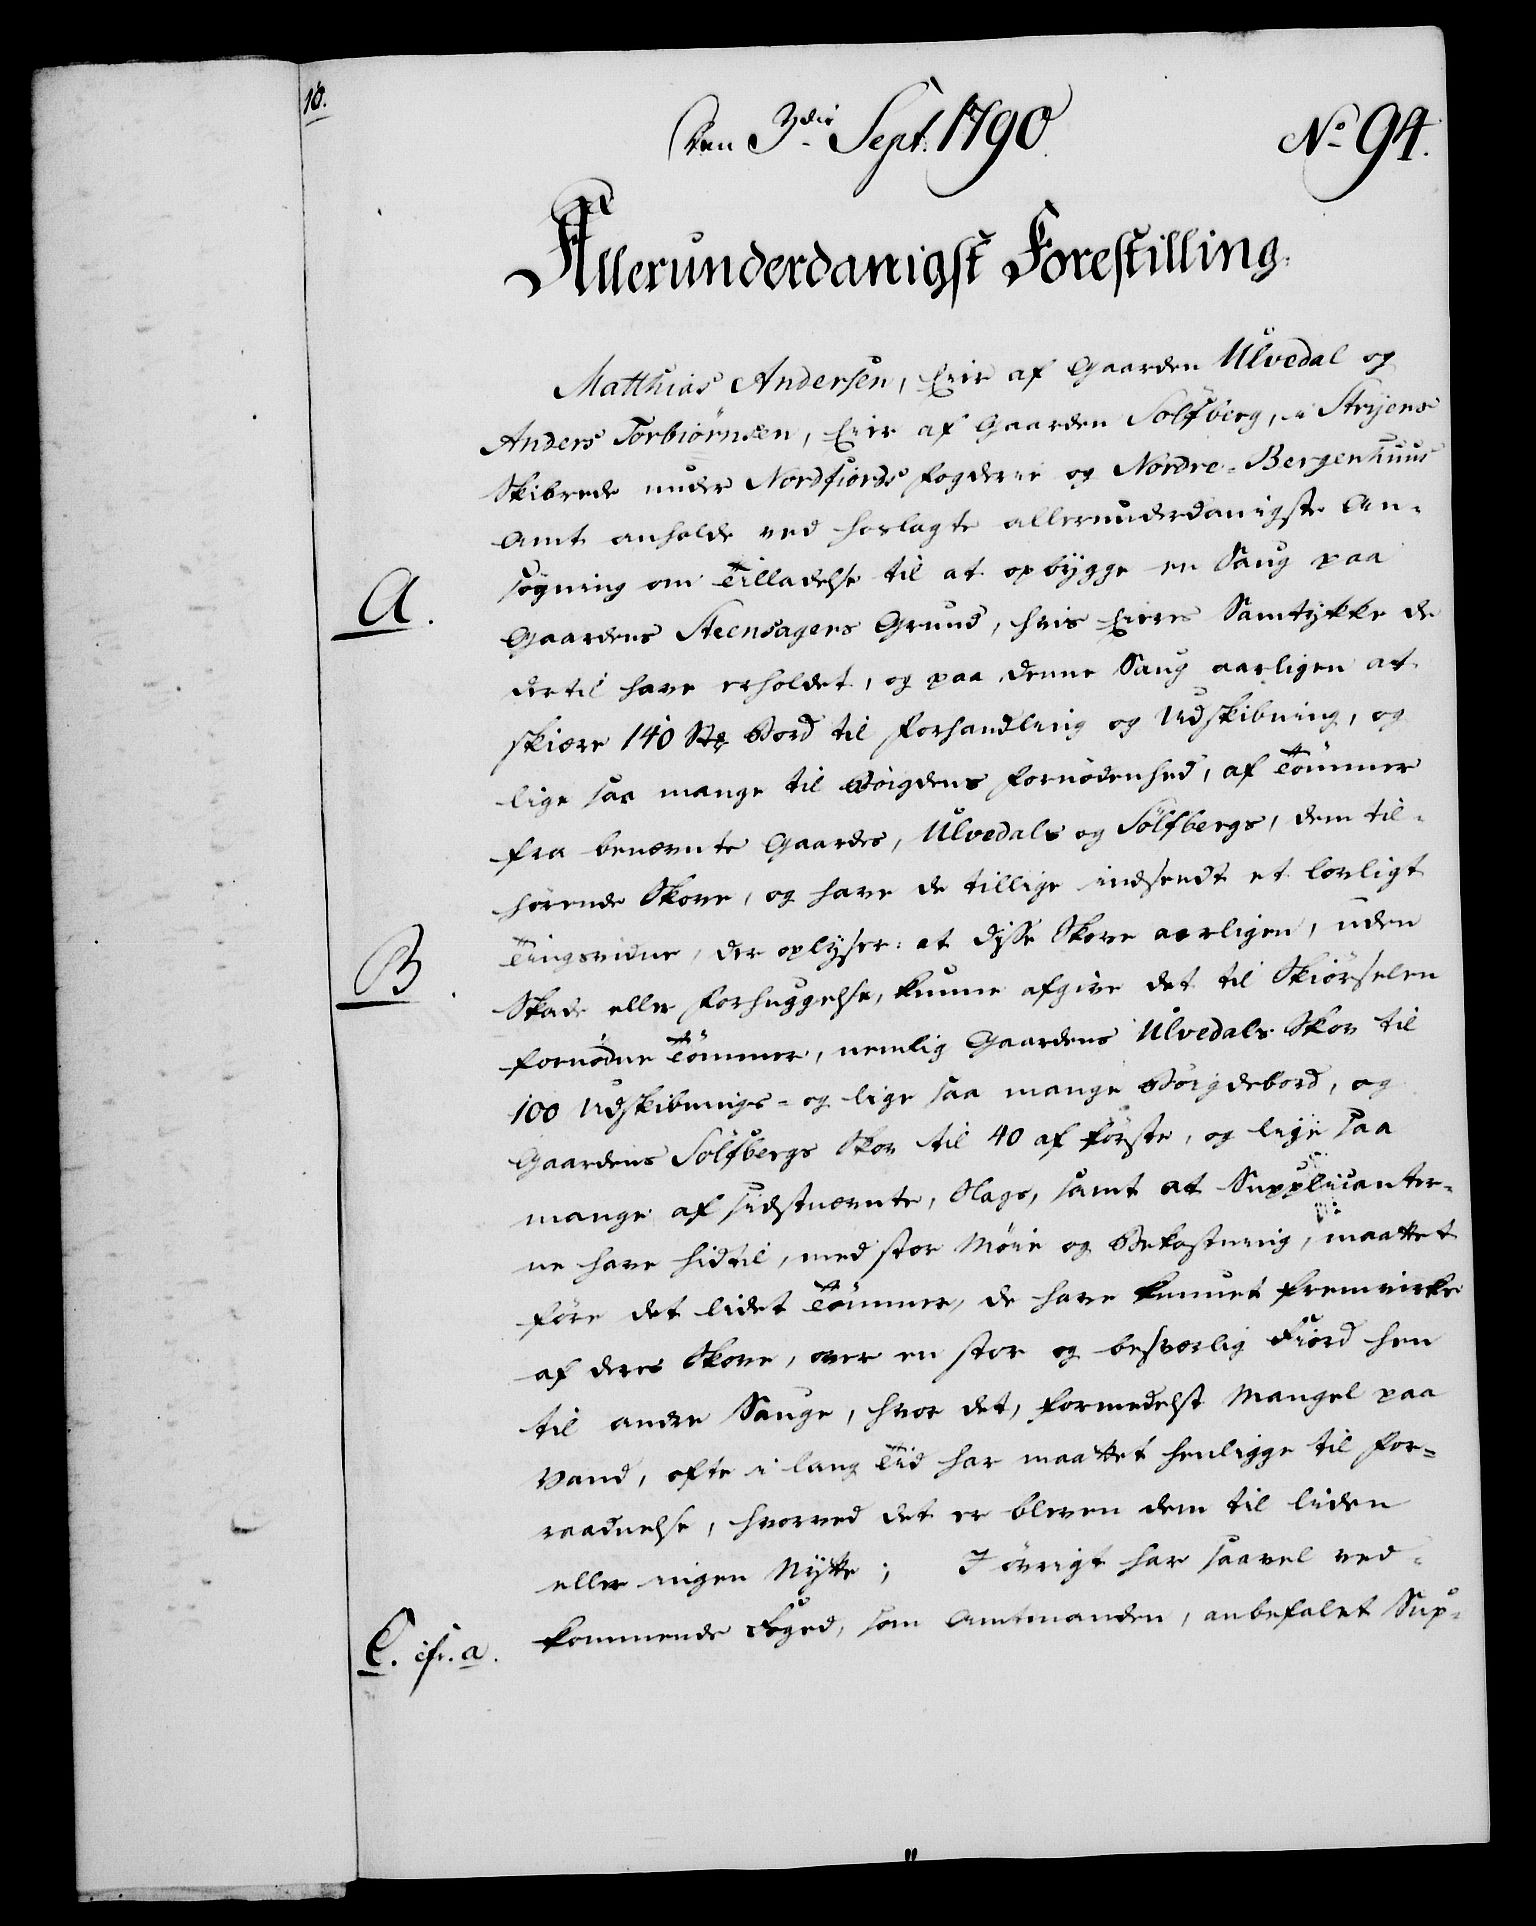 10.
Den 3die Sept. 1790.
No 94.
Allerunderdanigst Forestilling.
Matthias Andersen, Eier af Gaarden Ulvedal og
Anders Torbiörnsen, Eier af Gaarden Solfberg, i Stryens
Skibrede under Nordfiords Fogderie og Nordre-Bergenhuus
Amt anholde ved hoslagte allerunderdanigste An-
A.
søgning om Tilladelse til at opbygge en Saug paa
Gaardens Steensagers Grund, hvis Eieres Samtykke de
dertil have erholdet, og paa denne Saug aarligen at
skiære 140 Stk Bord til Forhandling og Udskibning, og
lige saa mange til Bøigdens Fornödenhed, af Tömmer
fra benævnte Gaarder, Ulvedals og Solfbergs, dem til-
hørende Skove, og have de tillige indsendt et lovligt
B.
Tingsvidne, der oplyser: at disse Skove aarligen, uden
Skade eller Forhuggelse, kunne afgive det til Skiörselen
fornødne Tømmer, nemlig Gaardens Ulvedals Skov til
100 Udskibnings- og lige saa mange Bøigdebord, og
Gaardens Solfbergs Skov til 40 af første, og lige saa
mange af sidstnævnte, Slags, samt at Supplicanter-
ne have hidtil, med stor Møie og Bekostning, maattet
føre det lidet Tømmer, de have kunnet fremvirke
af deres Skove, over en stor og besværlig Fiord hen
til andre Sauge, hvor det, formedelst Mangel paa
Vand, ofte i lang Tid har maattet henligge til For-
raadnelse, hvorved det er bleven dem til liden
eller ingen Nytte; I øvrigt har saavel ved-
C. cfr. a.
kommende Foged, som Amtmanden, anbefalet Sup-